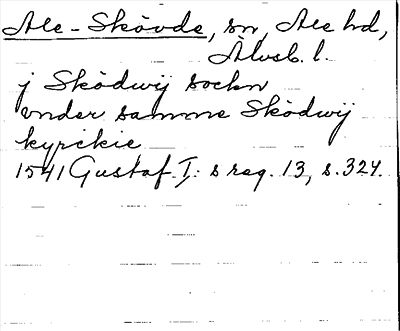 Ale-Skövde, sn, Ale hd,
Älvsb. l.
j Sködwij sockn
vnder samme Sködwij
kyrckie
1541 Gustaf I:s reg. 13, s. 324.